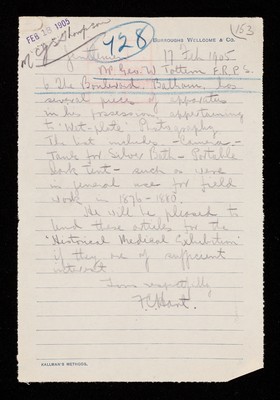 FEB 18 1905
Mr C J S Thompson
428
153
BURROUGHS WELLCOME & CO.
Gentlemen 17 Feb 1905
Mr Geo. W Tottem F.R.P.S.
6 The Boulevard, Balham, has
several pieces of apparatus
in his possession appertaining
to "Wet-plate" Photography
The lot includes - Camera -
Tank for Silver Bath - Portable
Dark Tent - such as were
in general use for field
work in 1876-1880.
He will be pleased to
lend these articles for the
"Historical Medical Exhibition"
if they are of sufficient
interest
Yours respectfully
F C Hart.
KALLMAN'S METHODS.